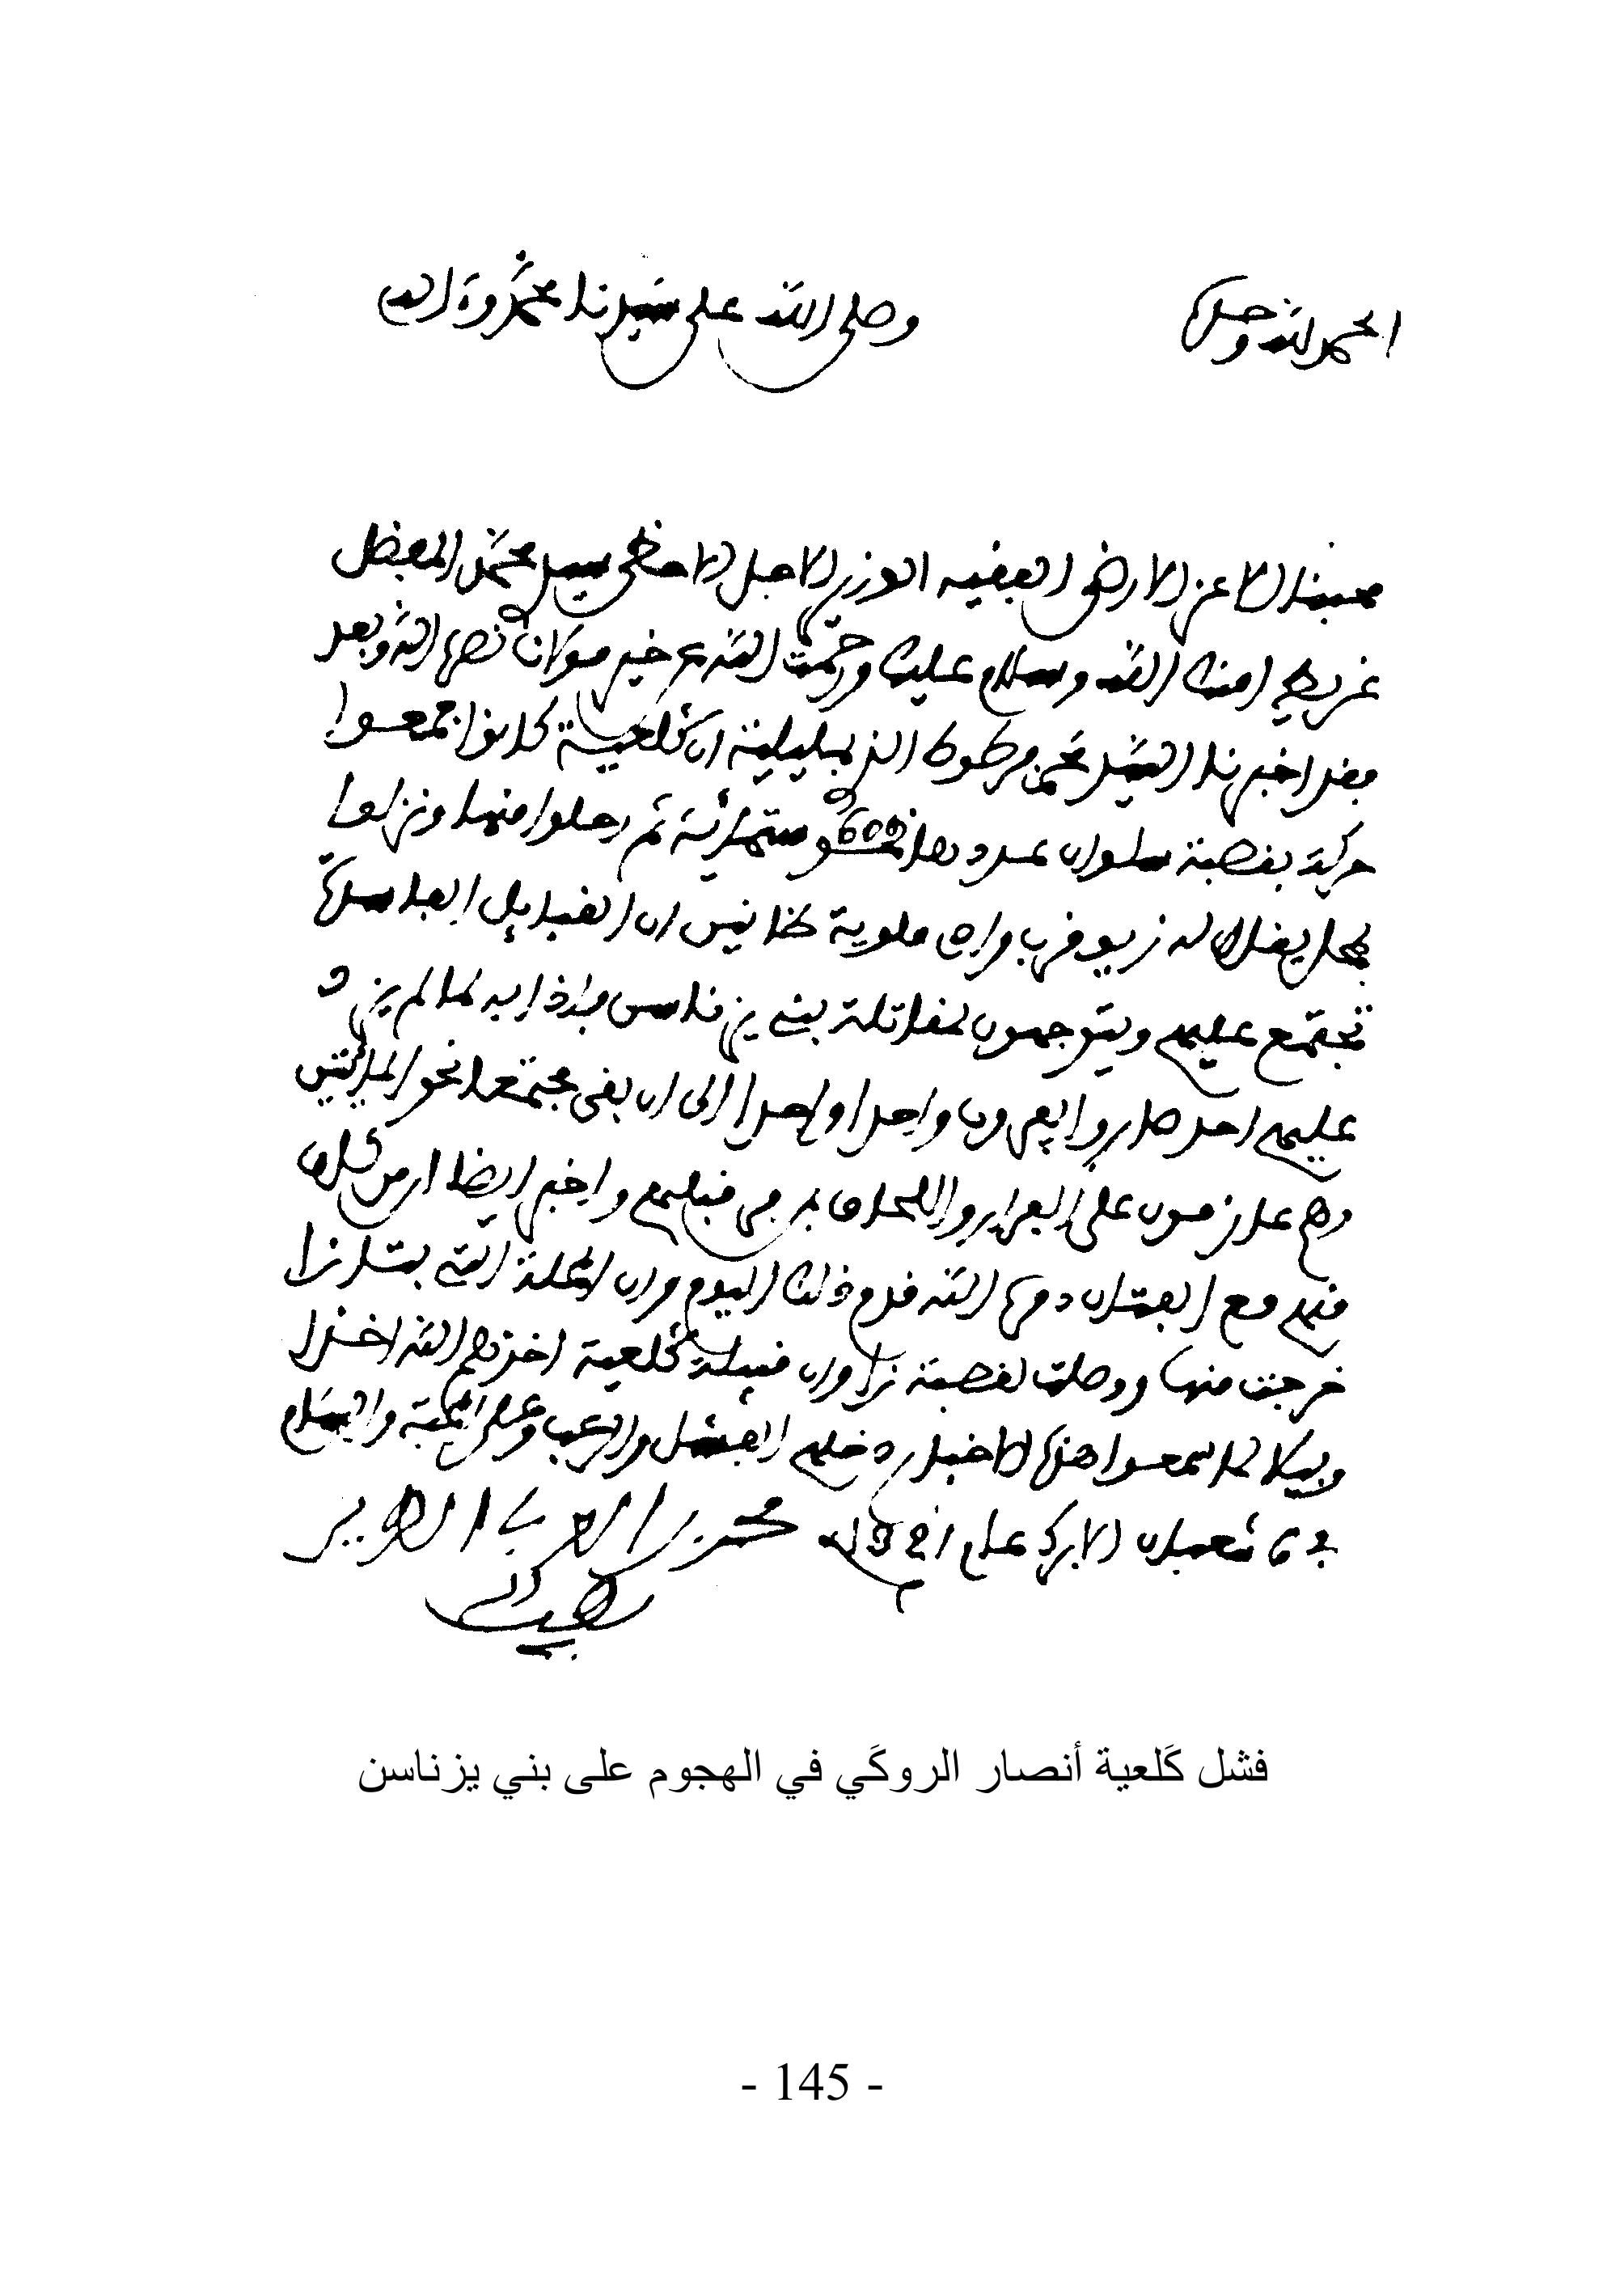 الحمد لله وحده
وصلى الله على سيدنا محمد وءاله
محبنا الاعز الارضى الفقيه الوزير الاجل الاحظى سيد محمد المفضل
غريط امنك الله وسلام عليك ورحمت الله عن خير مولانا نصره الله وبعد
فقد اخبرنا السيد محمد الذ بمليلية ان ڭلعية كانوا جمعوا
حركة بقصبة سلوان عدودها نحو 600 ستمائة ثم رحلوا منها ونزلوا
بمحل يقال له زيو قرب واد ملوية ظانين ان القبايل الفاسدة
تجتمع عليهم ويتوجهون لمقاتلة بني يزناسن فاذا به لما لم يزد
عليهم احد صاروا يفرون واحدا واحدا الى ان بقى مجتمعا نحو المائتين
وهم عازمون على الفرار واللحاق بمن فر قبلهم واخبر ايضا ان من كان
منهم مع الفتان دمره الله قدم ذلك اليوم وان المحلة التي بتازا
خرجت منها ووصلت لقصبة قبيلة ڭلعية اخزهم الله اخذا
وبيلا لما سمعوا هذه الاخبار دخلهم الفشل والرعب وعلى المحبة والسلام
في 6 شعبان الابرك عام 1321 محمد
فشل ڭلعية أنصار الروڭي في الهجوم على بني يزناسن
- 145 -